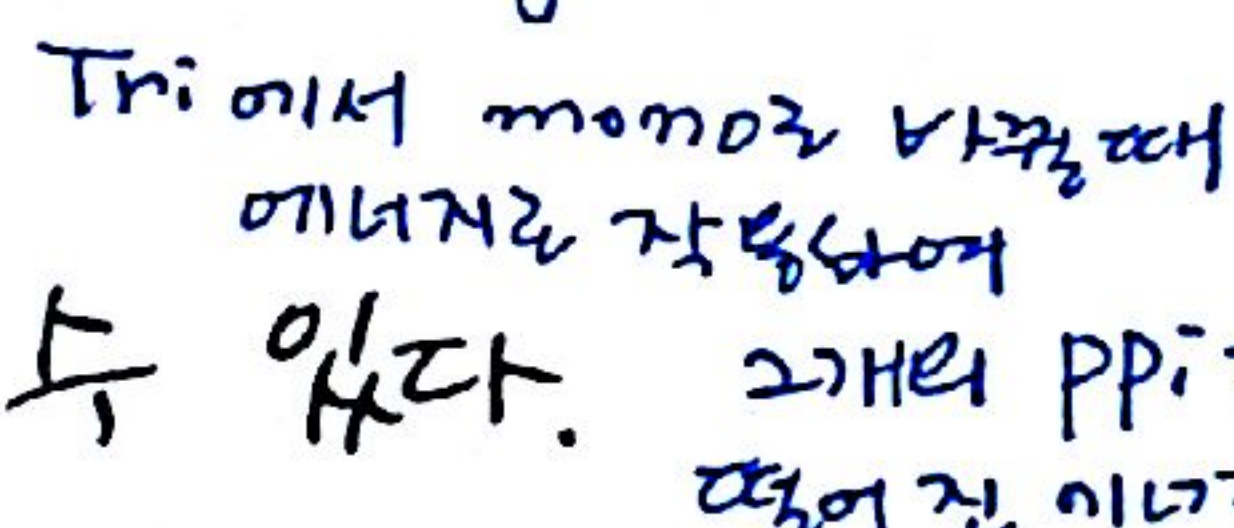 Tri 에서 mono로 바뀔때
에너지로 작용하여
수 있다.
2개의 PPi
떨어진